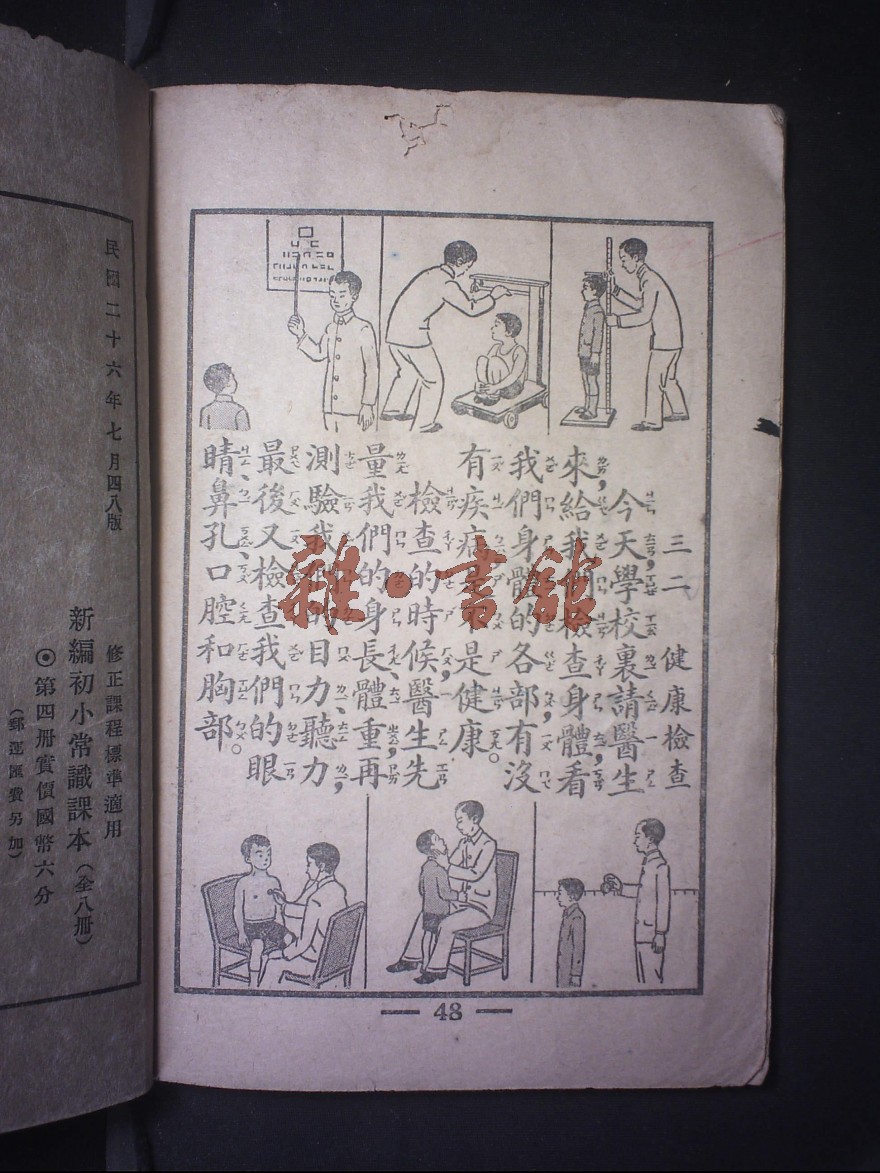 三二 健康檢查
今天,學校裏請醫生
來,給我們檢查身體,看
我們身體的各部,有沒
有疾病是不是健康。
檢查的時候,醫生先
量我們的身長、體重,再
測驗我們的目力、聽力,
最後又檢查我們的眼
睛、鼻孔、口腔和胸部。
48
民國二十六年七月四八版
修正課程標準適用
新編初小常識課本(全八冊)
⊙第四冊實價國幣六分
(郵運匯費另加)
雜·書館